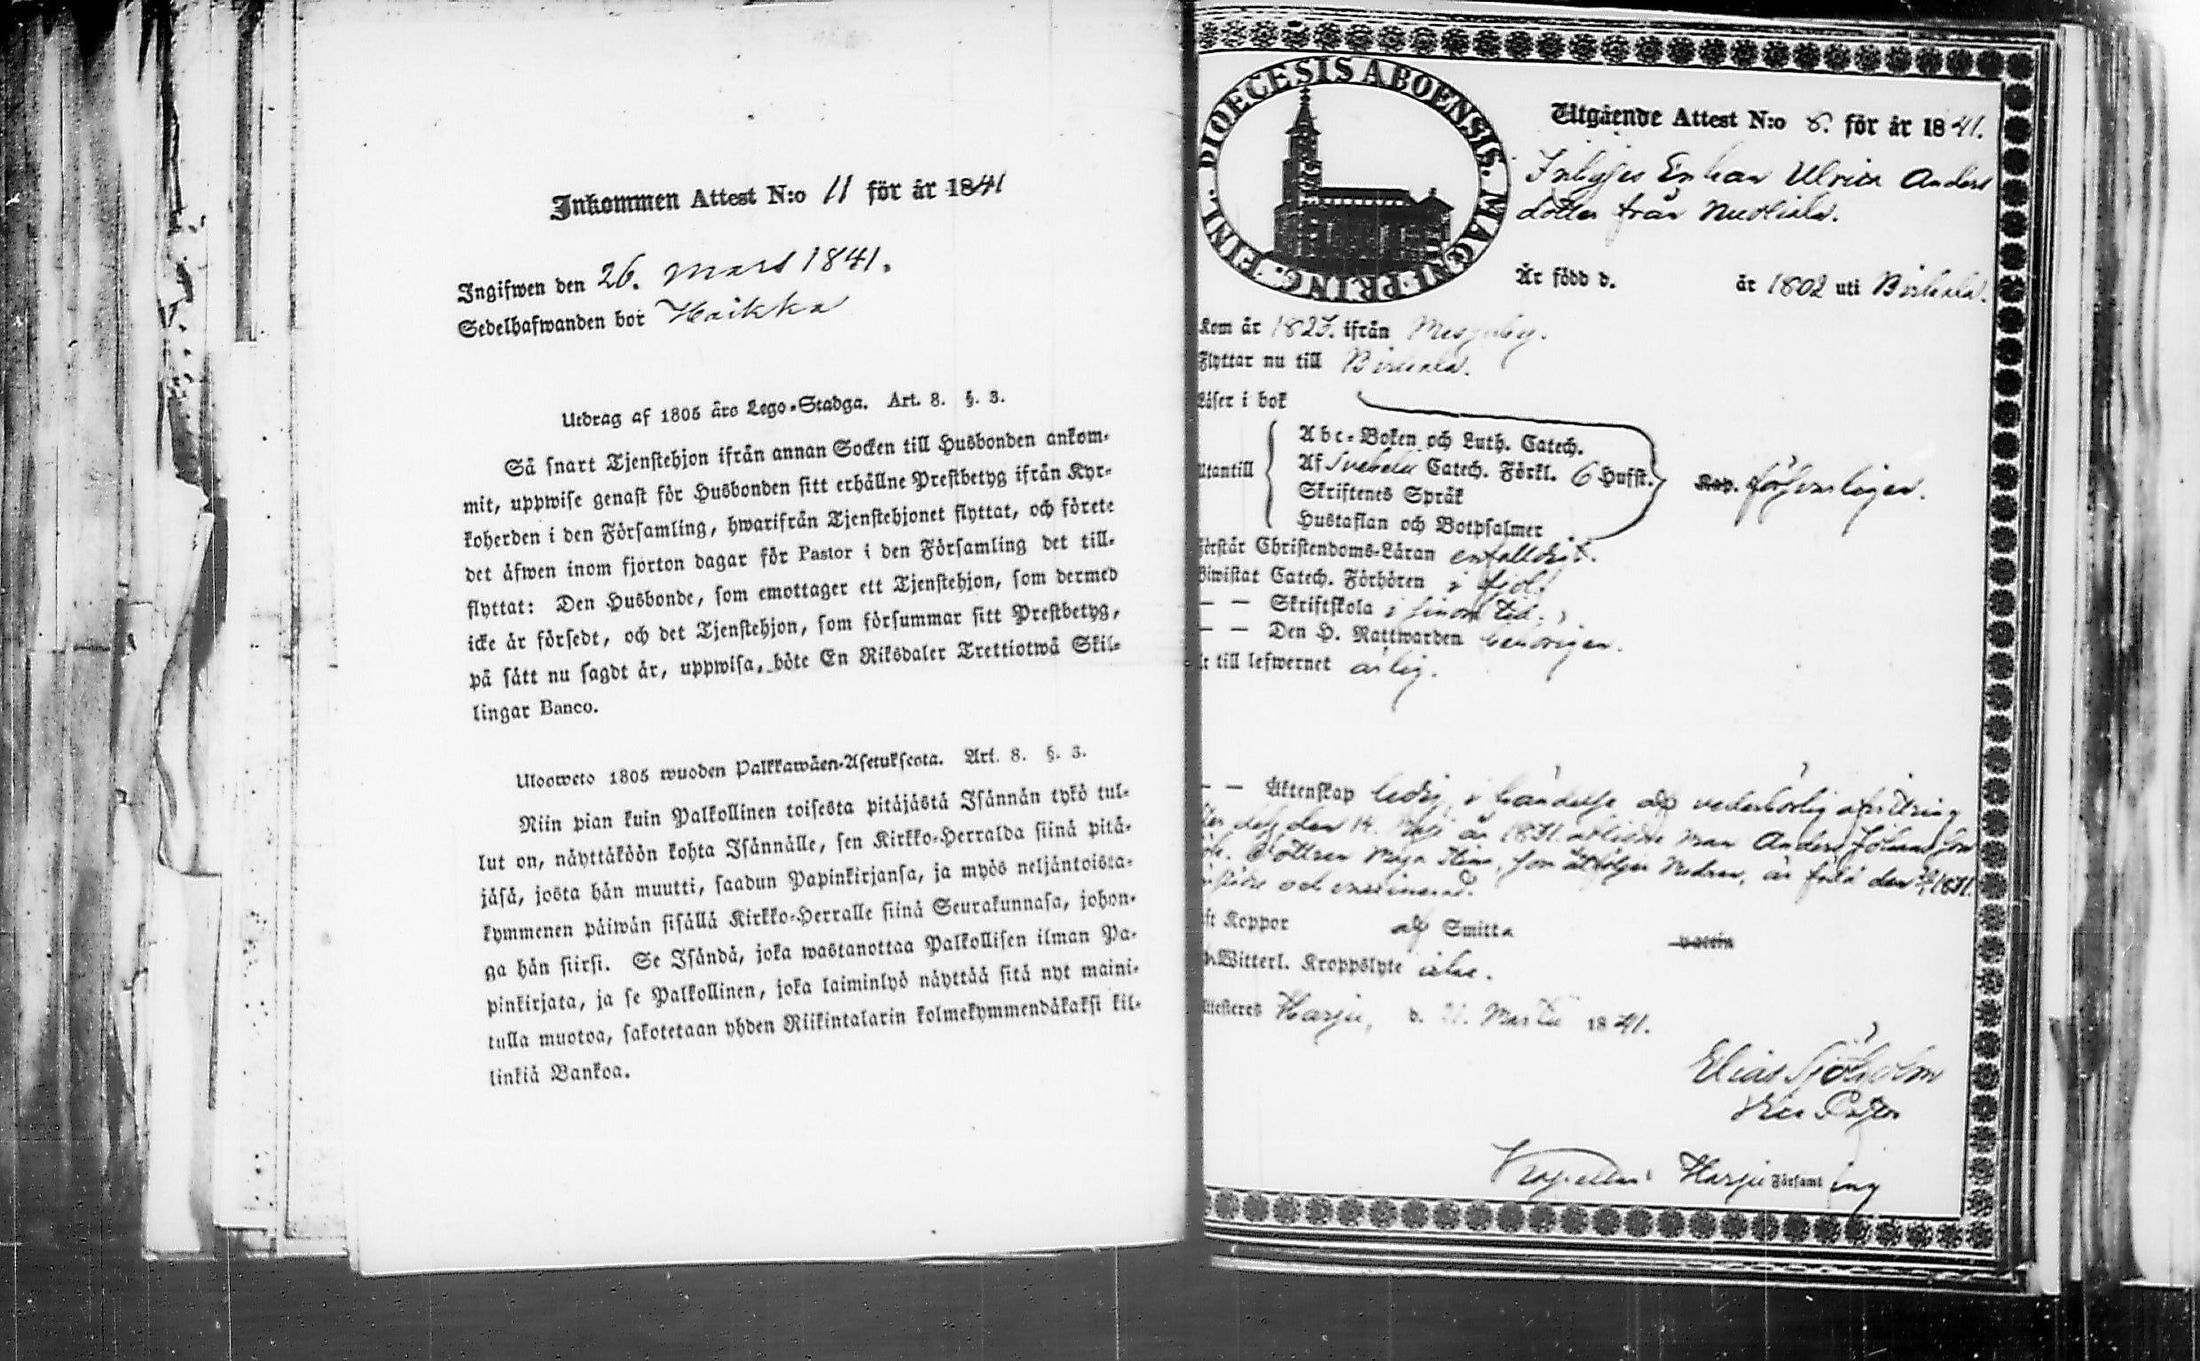 Inkommen Attest N:o 11 för år 1841
Ingifwen den 26. Mars 1841.
Sedelhafwanden bor Haikka
Utdrag af 1805 års Lego-Stadga. Art. 8. §. 3.
Så snart Tjenstehjon ifrån annan Socken till Husbonden ankom-
mit, uppwise genast för Husbonden sitt erhållne Prestbetyg ifrån Kyr-
koherden i den Församling, hwarifrån Tjenstehjonet flyttat, och förete
det äfwen inom fjorton dagar för Pastor i den Församling det till-
flyttat: Den Husbonde, som emottager ett Tjenstehjon, som dermed
icke är försedt, och det Tjenstehjon, som försummar sitt Prestbetyg,
på sätt nu sagdt är, uppwisa, böte En Riksdaler Trettiotwå Skil-
lingar Banco.
Ulosweto 1805 wuoden Palkkawäen-Asetuksesta. Art. 8. §. 3.
Niin pian kuin Palkollinen toisesta pitäjästä Isännän tykö tul-
lut on, näyttäköön kohta Isännälle, sen Kirkko-Herralda siinä pitä-
jäsä, josta hän muutti, saadun Papinkirjansa, ja myös neljäntoista-
kymmenen päiwän sisällä Kirkko-Herralle siinä Seurakunnasa, johon-
ga hän siirsi. Se Isändä, joka wastanottaa Palkollisen ilman Pa-
pinkirjata, ja se Palkollinen, joka laiminlyö näyttää sitä nyt maini-
tulla muotoa, sakotetaan yhden Riikintalarin kolmekymmendäkaksi kil-
linkiä Bankoa.
FINL. DIOECESIS ABOENSIS. MAGNI PRING.
Utgående Attest N:o 8. för år 1841.
Inhyses Enkan Ulrica Anders
dotter från
Är född d. år 1802 uti Birkala.
Kom år 1827. ifrån Messuby.
Flyttar nu till Birkala.
Läser i bok
Utantill
Abc-Boken och Luth. Catech.
Af Svebelii Catech. Förkl. 6 Hufst.
Skriftenes Språk
Hustaflan och Botpsalmer
förswarligen.
Förstår Christendoms-Läran enfaldigt.
Biwistat Catech. Förhören
— — Skriftskola i sinom tid.
— — Den H. Nattwarden behörigen.
Är till lefwernet ärlig.
— — Äktenskap ledig, i händelse af vederbörlig afvittring
efter dess den 14. år 1831. aflidne man Anders Johansson
Dottren Maja Stina, som åtföljer Modren, är född den 1831.
och vaccinerad.
Haft Koppor af Smitta
Witterl. Kroppslyte icke.
Attesteres Harju, d. Martii 1841.
Elias Sjöholm
Vice Pastor
Harju Församling